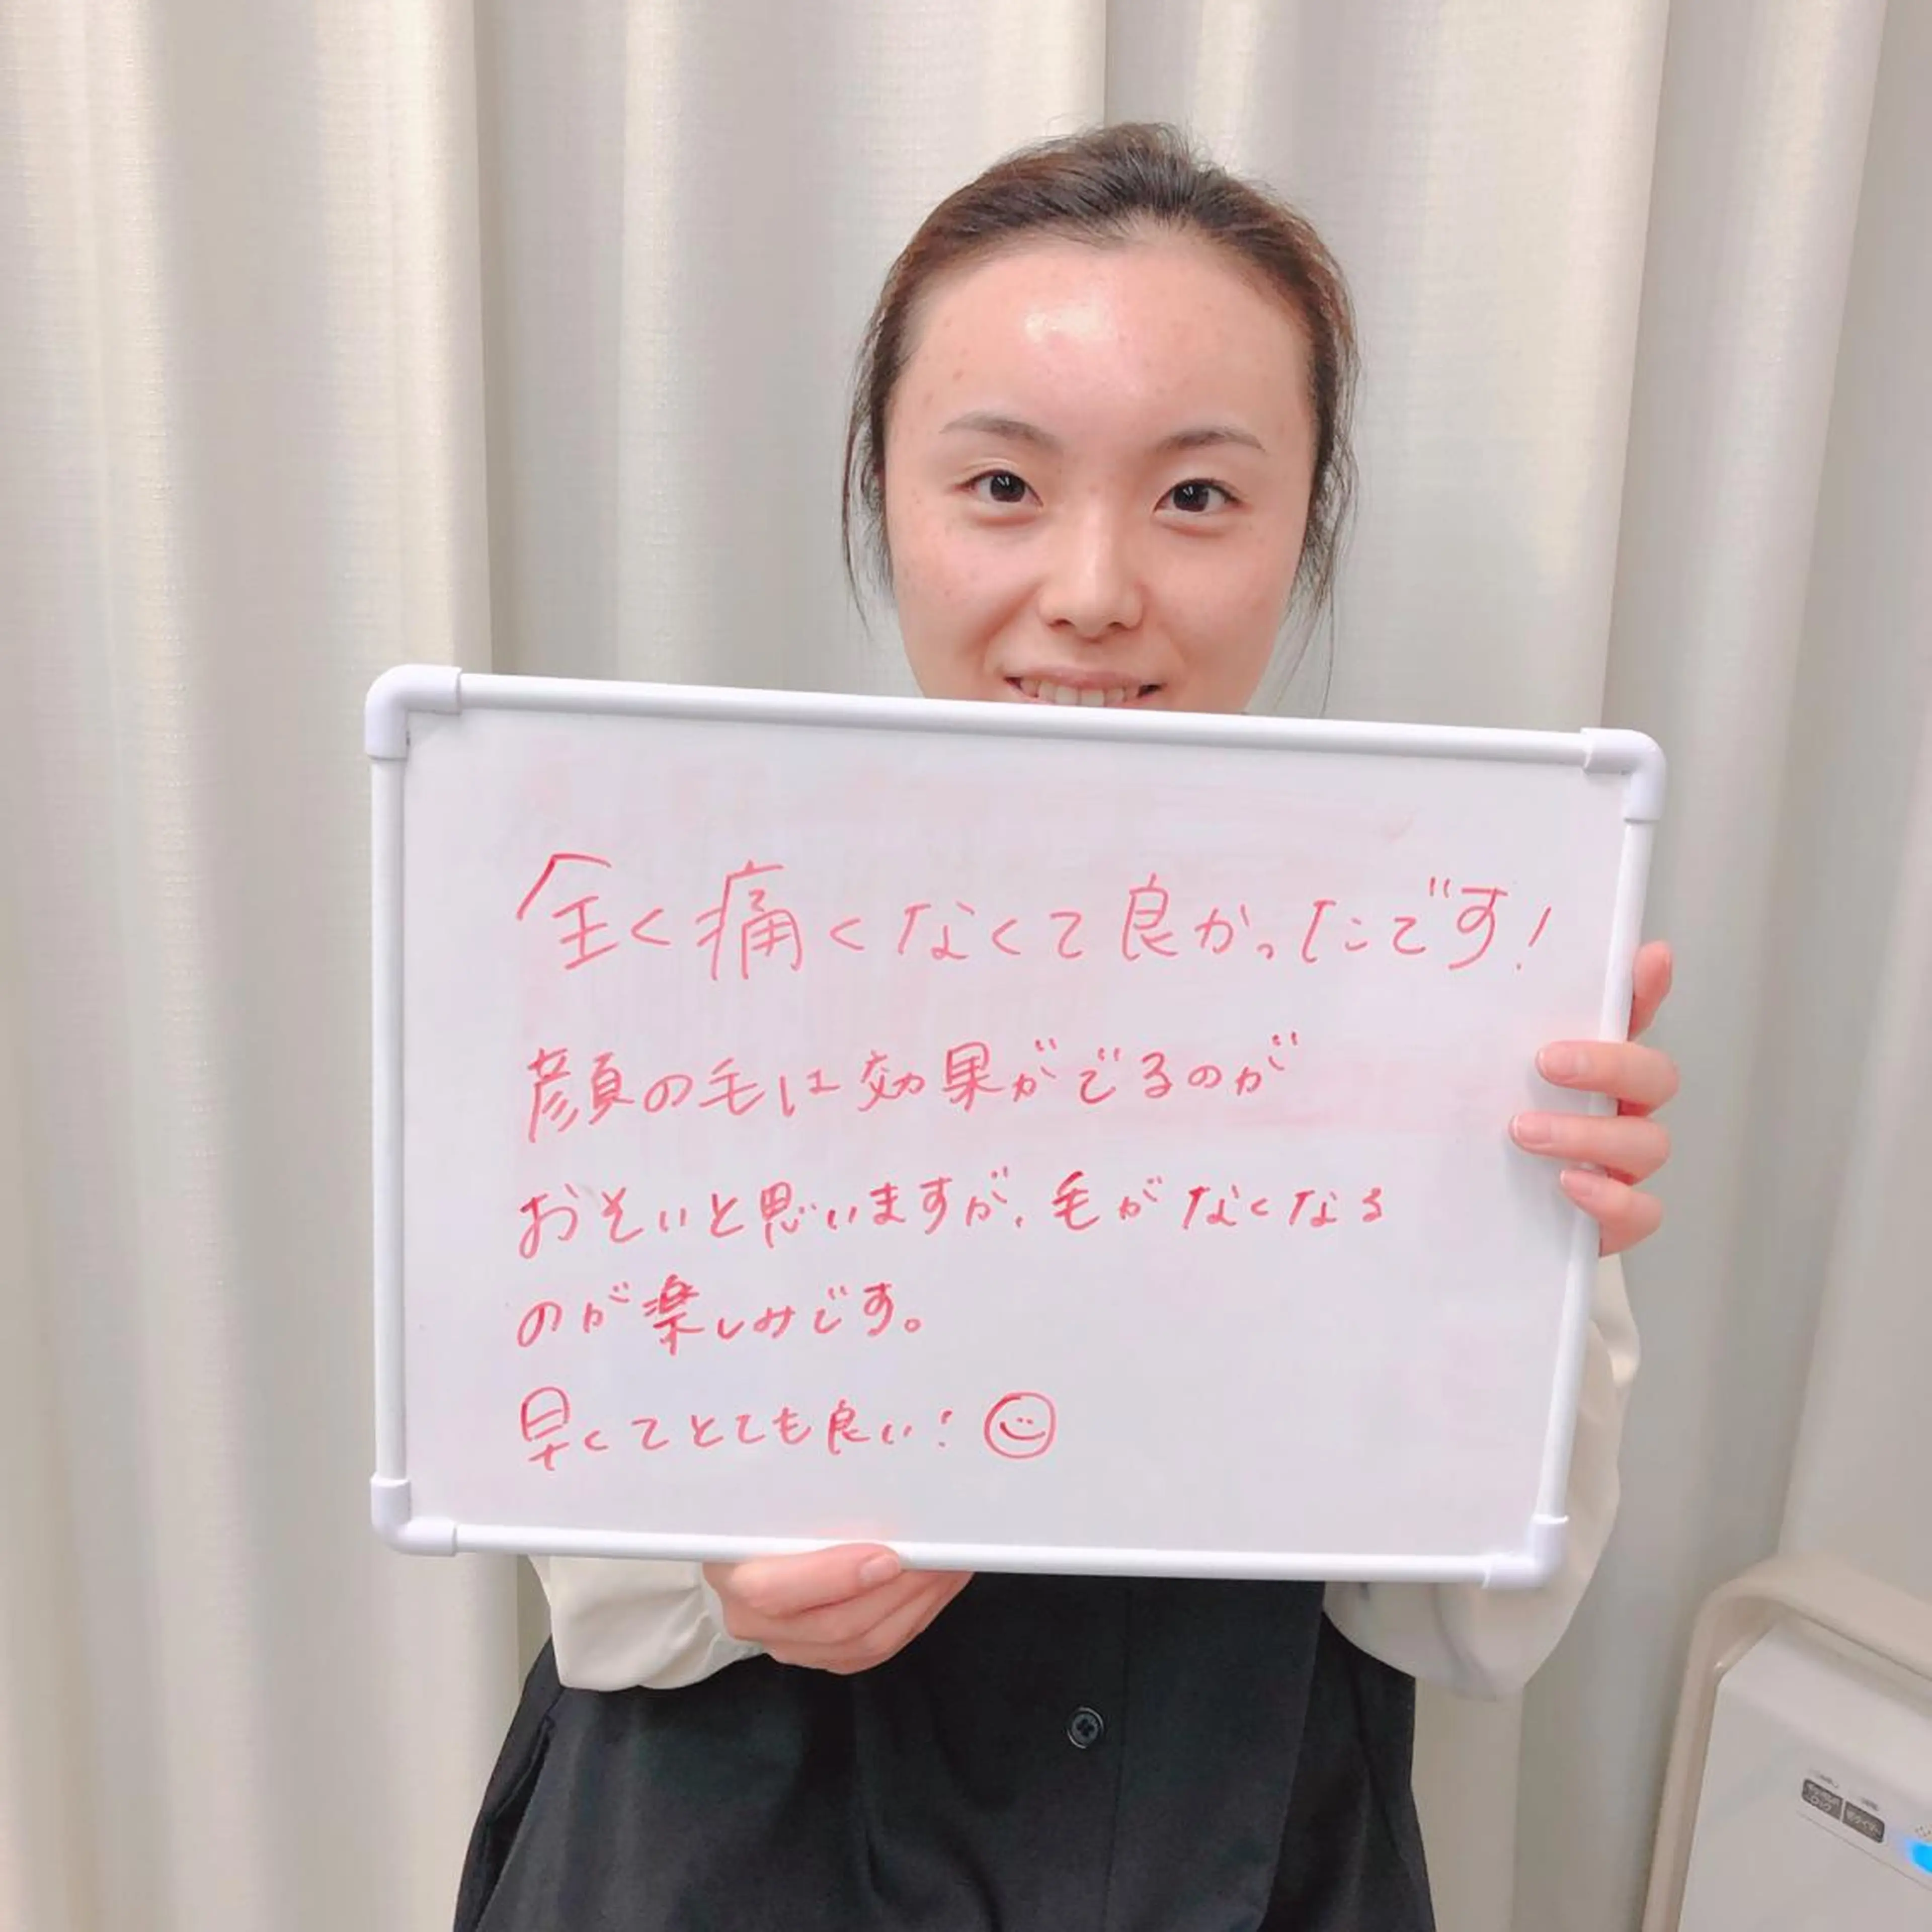 全く痛くなくて良かったです!
顔の毛は効果がでるのが
おそいと思いますが、毛がなくなる
のが楽しみです。
早くてとても良い!